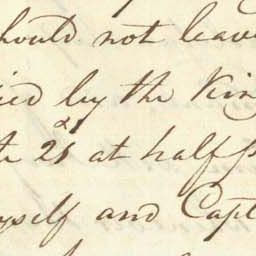 should not leave
ied by the Kin
te 2d at half p
yself and Capt